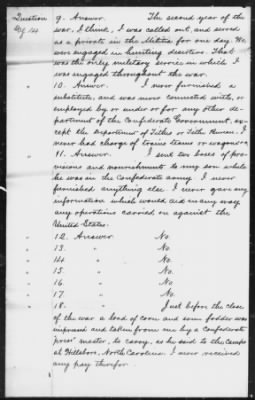 Question 9. Answer. The second year of the
war, I think, I was called out, and served
as a private in the Militia for one day. We
were engaged in hunting deserters. That
was the only military service in which I
was engaged throughout the war.
" 10. Answer. I never furnished a
substitute, and was never connected with, or
employed by or under or for any other de-
partment of the Confederate Government, ex-
cept the Department of Tithes or Tithe Bureau. I
never had charge of trains teams or wagons
" 11. Answer. I sent two boxes of pro-
visions and nourishment to my son while
he was in the Confederate army. I never
furnished anything else. I never gave any
information which would aid in any way
any operations carried on against the
United States.
" 12. Answer No.
" 13. " No.
" 14. " No.
" 15. " No.
" 16. " No.
" 17. " No.
" 18. " Just before the close
of the war a load of corn and some fodder was
impressed and taken from me by a Confederate
"press" master, to carry, as he said to the camps
at Hillsboro, North Carolina. I never received
any pay therefor.